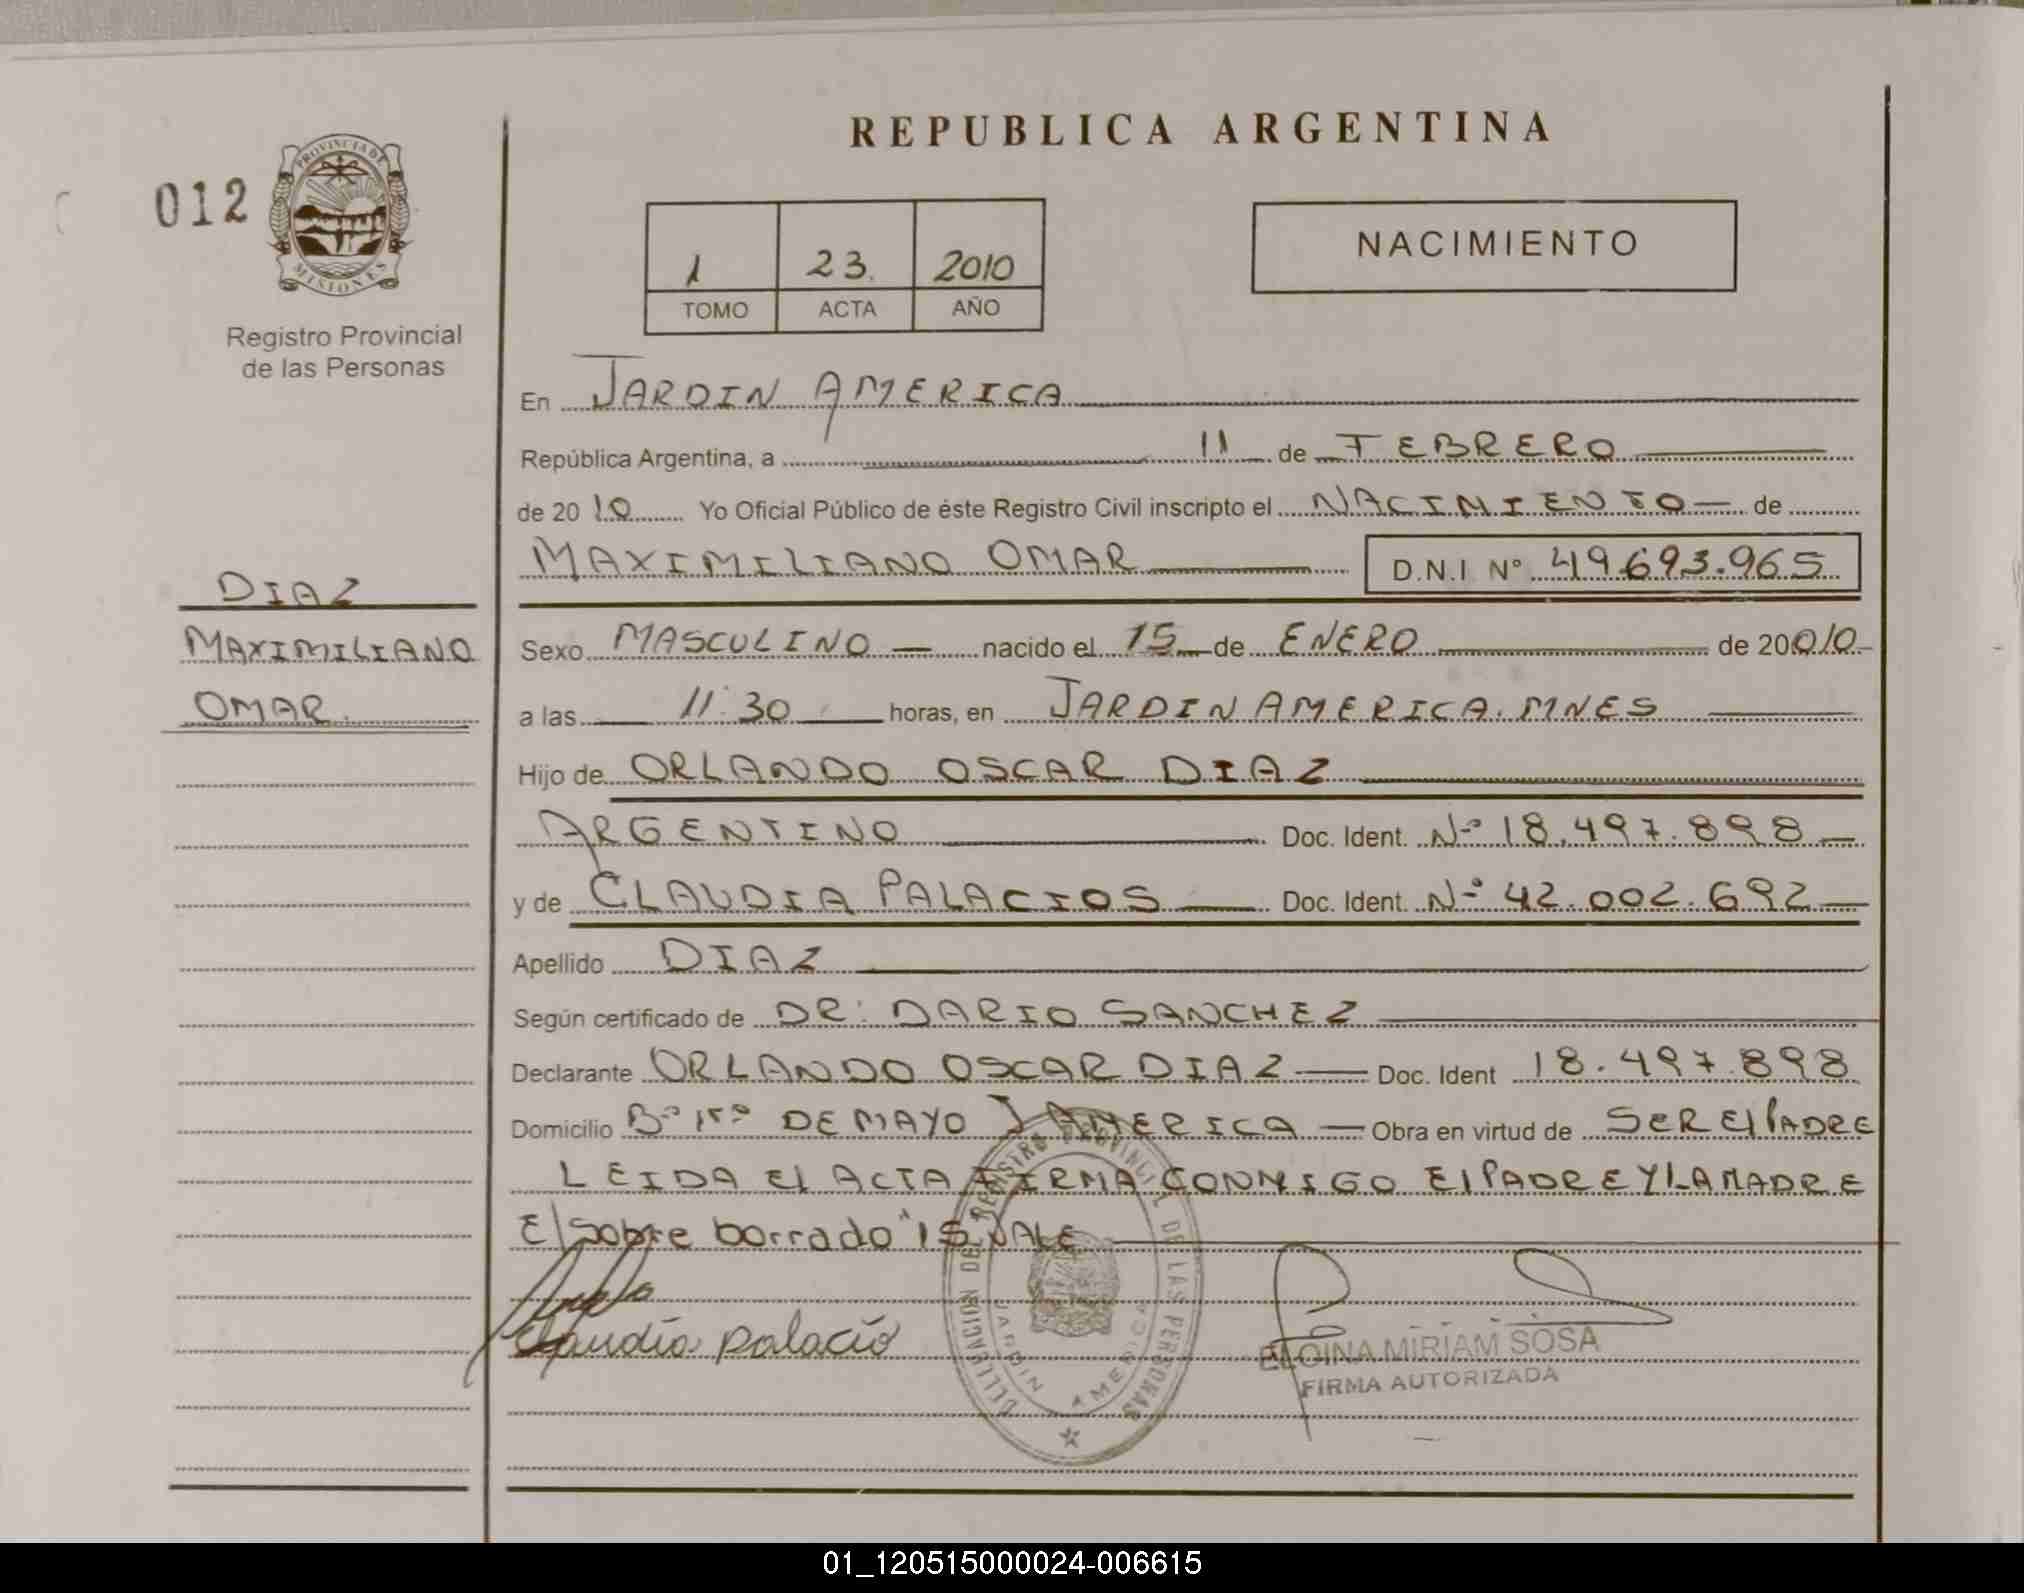 REPUBLICA ARGENTINA
012
PROVINCIA DE
MISIONES
Registro Provincial
de las Personas
1 23. 2010
TOMO ACTA AÑO
NACIMIENTO
En JARDIN AMERICA
República Argentina, a 11 de FEBRERO
de 2010 Yo Oficial Público de éste Registro Civil inscripto el NACIMIENTO de
MAXIMILIANO OMAR D.N.I Nº 49.693.965
DIAZ
MAXIMILIANO
OMAR.
Sexo MASCULINO nacido el 15 de ENERO de 20010
a las 11:30 horas, en JARDIN AMERICA. MNES
Hijo de ORLANDO OSCAR DIAZ
ARGENTINO Doc. Ident. Nº 18.497.898
y de CLAUDIA PALACIOS Doc. Ident. Nº 42.002.692
Apellido DIAZ
Según certificado de DR: DARIO SANCHEZ
Declarante ORLANDO OSCAR DIAZ Doc. Ident 18.497.898
Domicilio Bº 1rº DE MAYO J AMERICA Obra en virtud de SER El PADRE
LEIDA El ACTA FIRMA CONMIGO El PADRE Y LA MADRE
El sobre borrado "15 VALE
Claudia Palacio
DELEGACION DEL REGISTRO PROVINCIAL DE LAS PERSONAS
JARDIN AMERICA
ELOINA MIRIAM SOSA
FIRMA AUTORIZADA
01_120515000024-006615